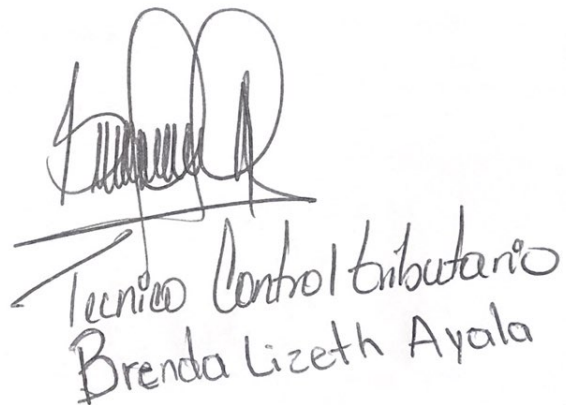 Tecnico Control tributario
Brenda Lizeth Ayala